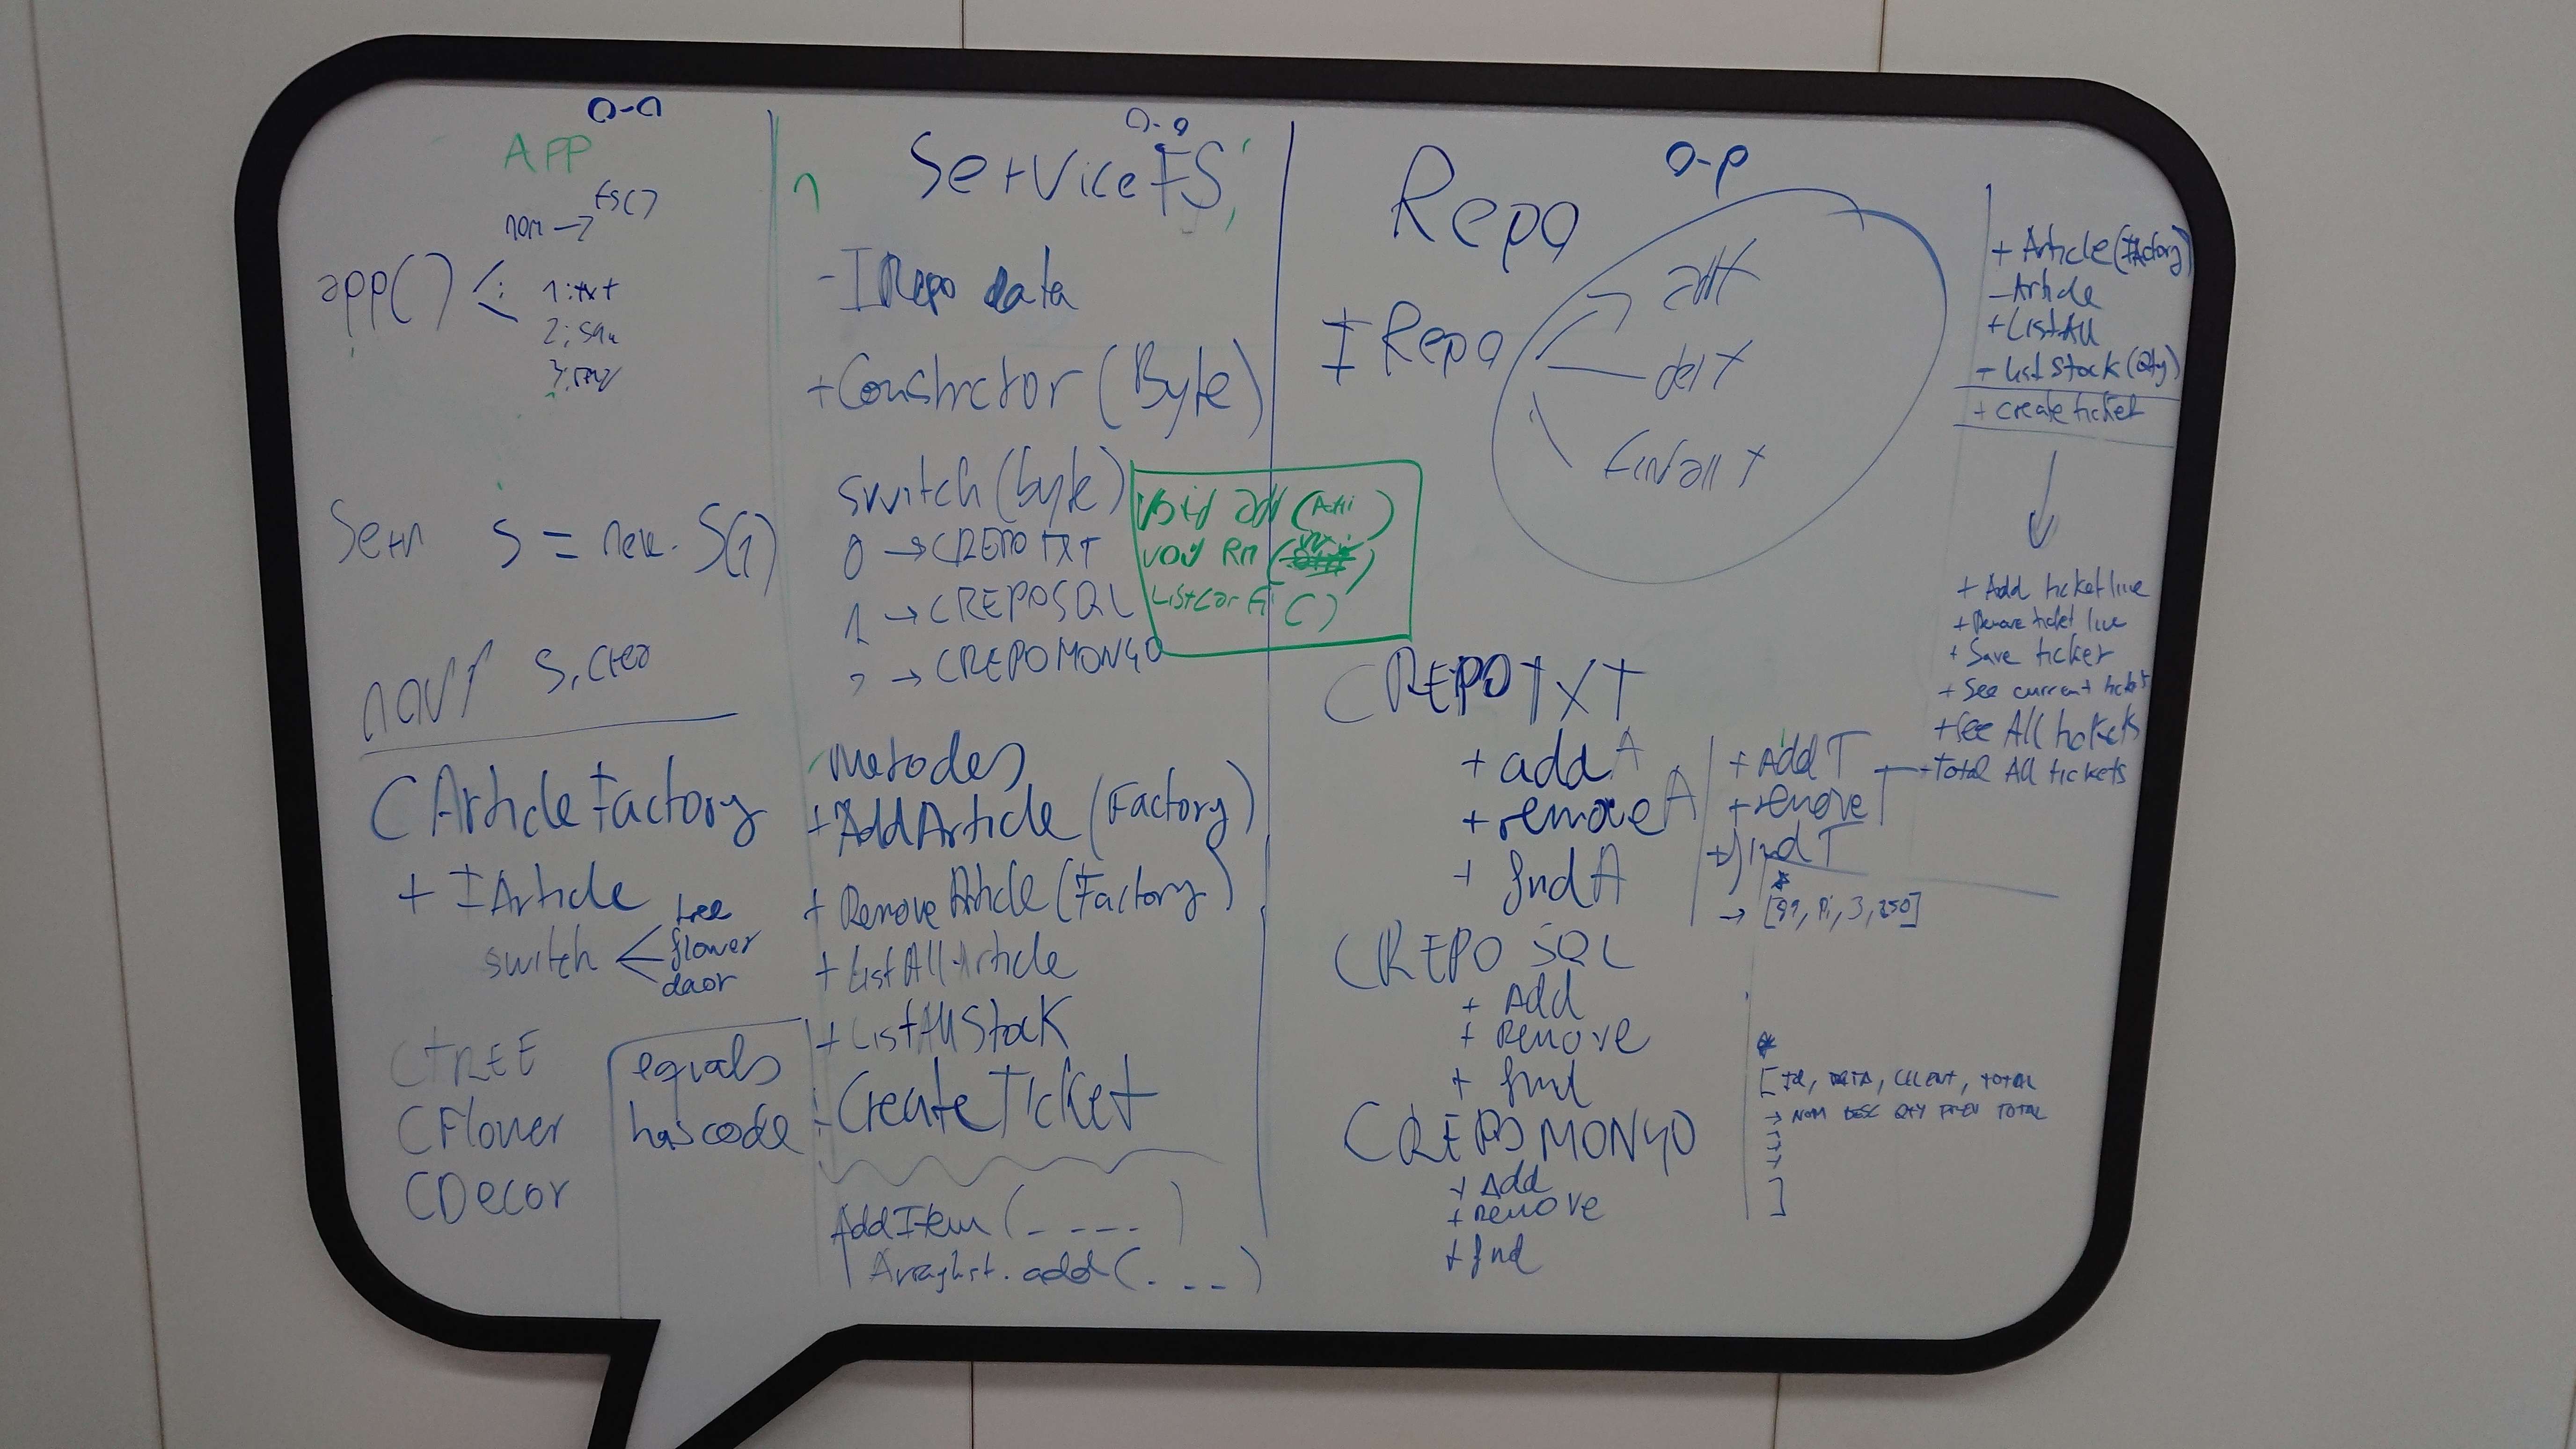 APP
nom → FS()
app()
1: txt
2: sql
S = new S(1)
CArticle Factory
+ IArticle
switch
tree
flower
daor
CTREE
CFlower
CDecor
equals
hascode
Service FS
- IRepo data
+ Constrctor (Byte)
switch (byte)
0 → CREPO TXT
1 → CREPOSQL
→ CREPOMONGO
void add (Arti)
void RM ( )
Metodes
+ AddArticle (Factory)
+ Remove Article (Factory)
+ List All Article
+ ListAllStock
+ Create Ticket
AddItem (_ _ _ _)
Arraylist.add(. _ _)
Repo
IRepo
CREPO TXT
+ add A
+ remove A
+ find A
+ Add T
+ remove T
+ find T
CREPO SQL
+ Add
+ Remove
+ find
CREPO MONGO
+ Add
+ Remove
+ find
+ Article (Factory)
- Article
+ List All
+ List Stock (Qty)
+ create ticket
+ Add ticket line
+ Remove ticket line
+ Save ticket
+ See current ticket
+ See All tickets
+ Total All tickets
[Id, DATA, CLIENT, TOTAL
→ NOM DESC QTY PREU TOTAL
]